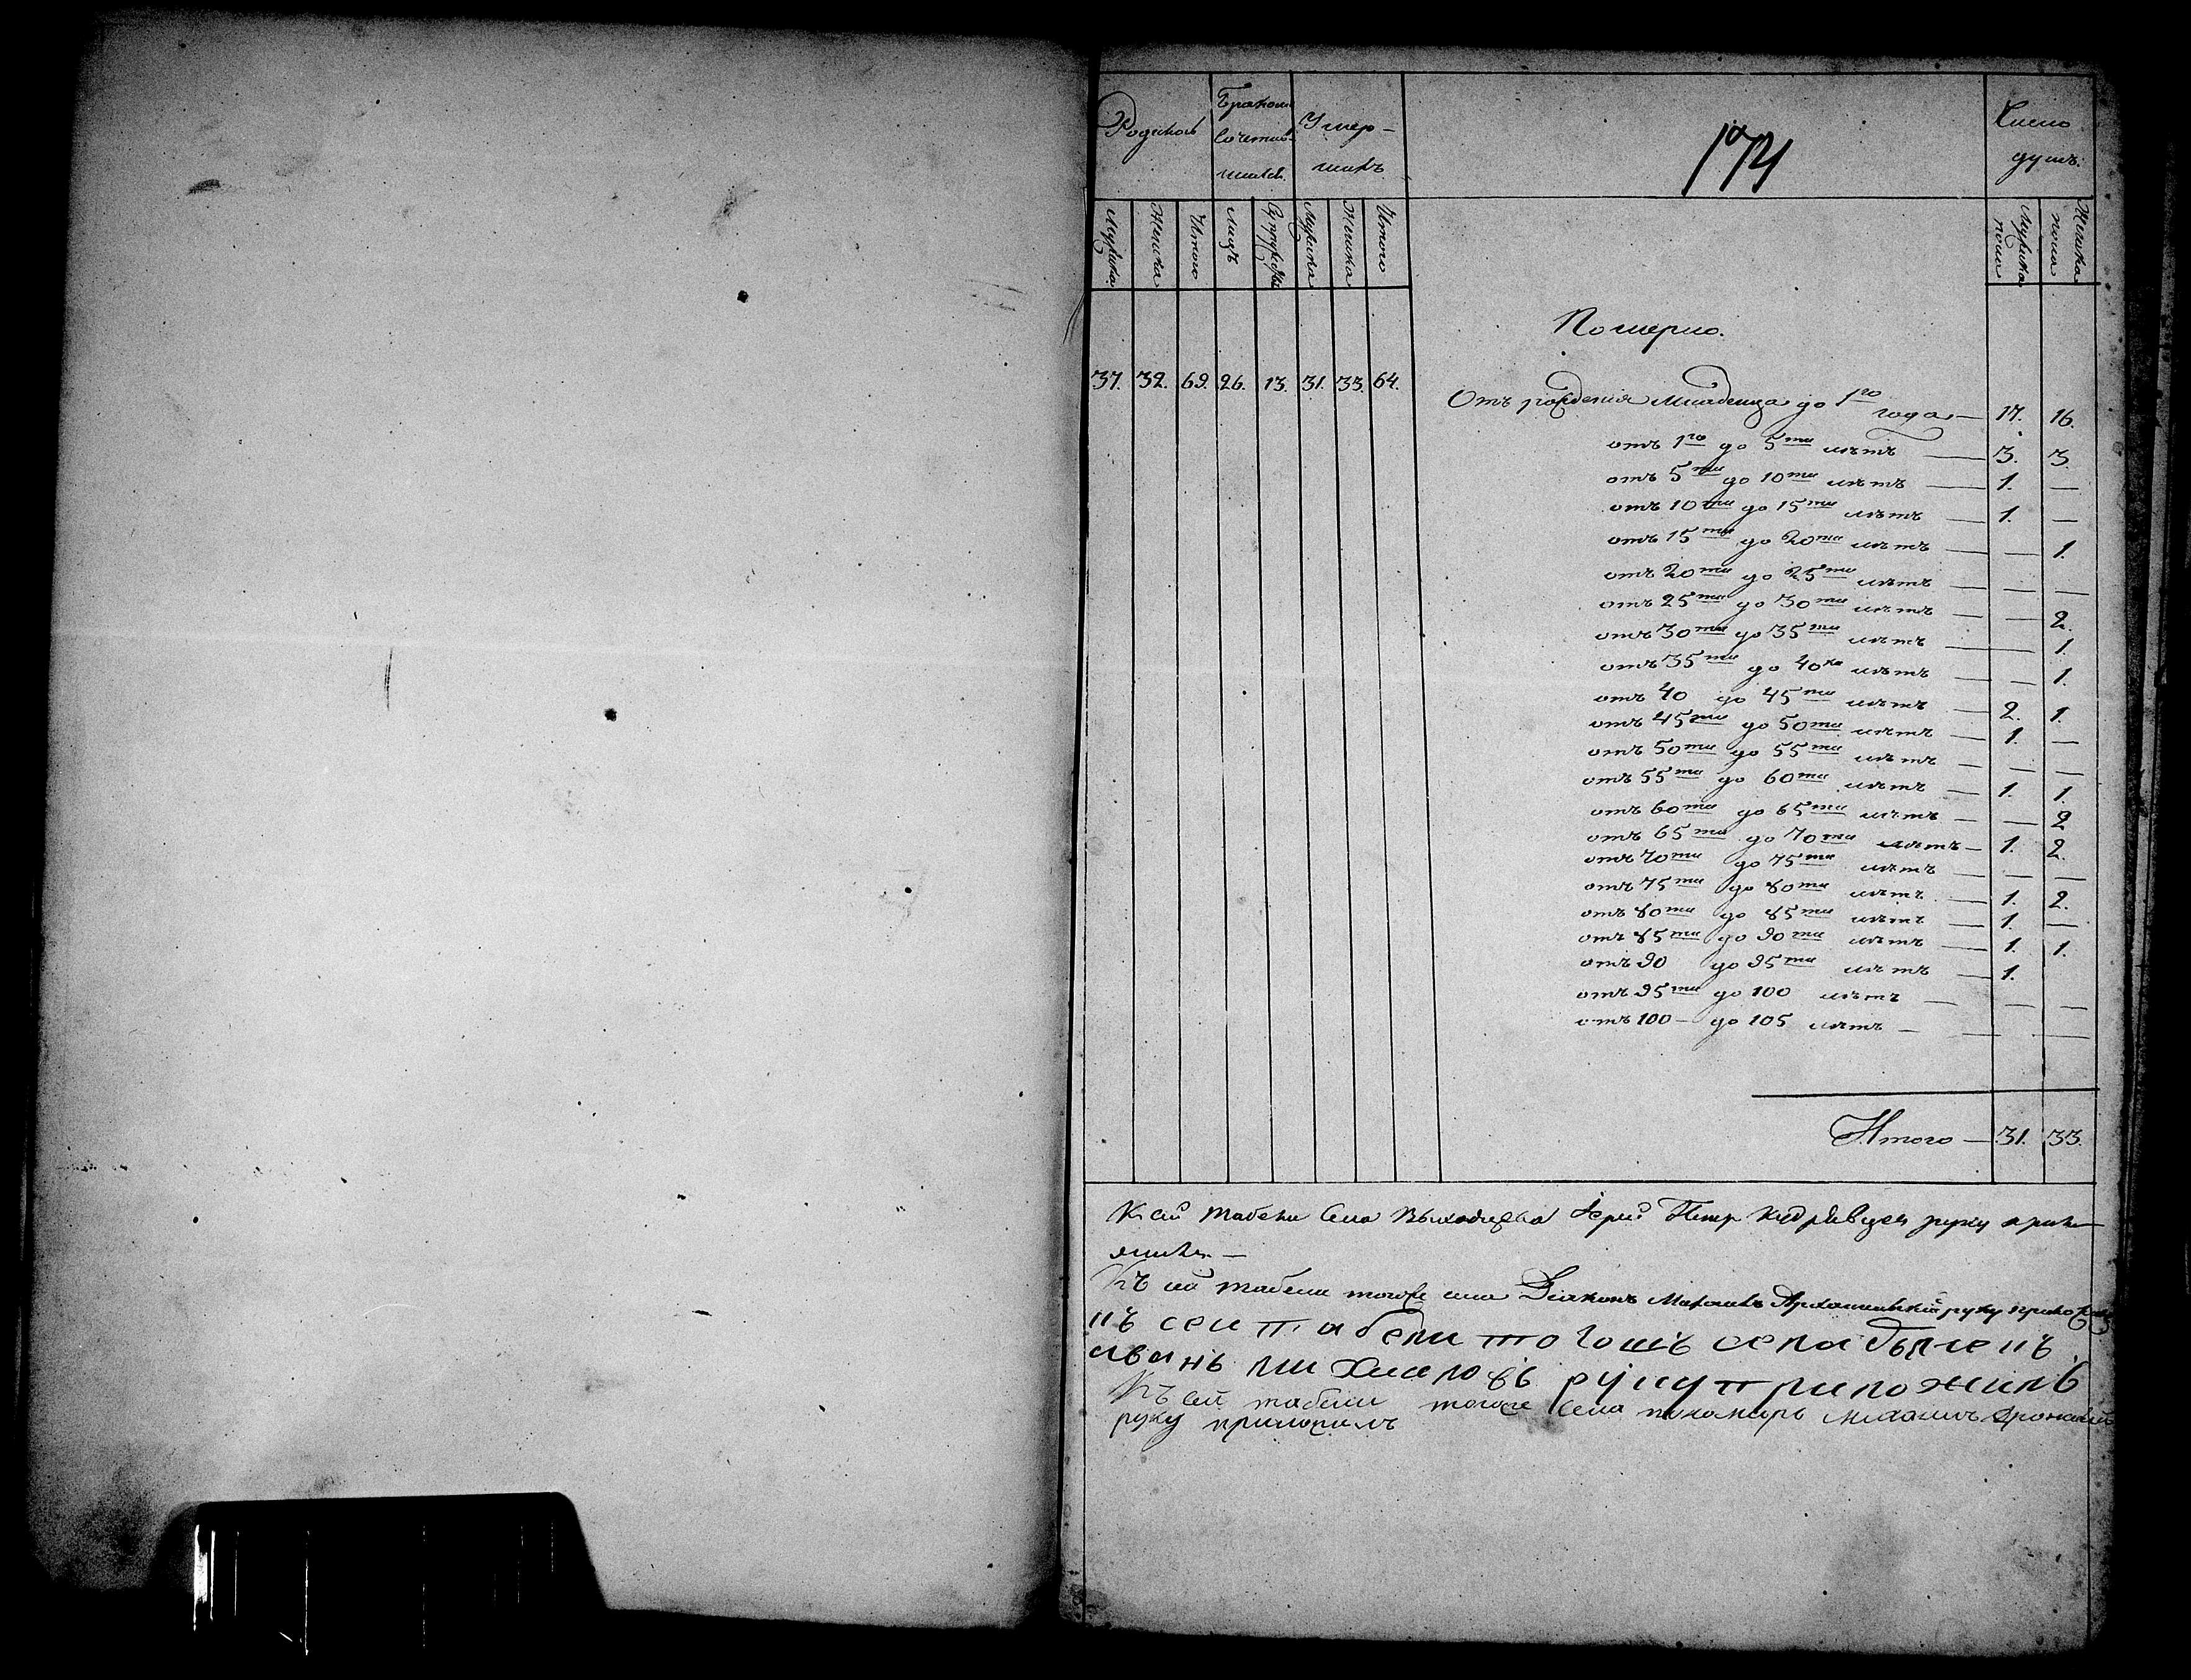 Родилось
Бракомъ сочетавшихся
Умершихъ
174
Число душъ:
Мужска Женска Итого Лицъ Супружествъ Мужска Женска Итого
Мужска пола Женска пола
Померло.
37. 32. 69. 26. 13. 31. 33. 64.
Отъ рожденія младенца до 1го года — 17. 16.
отъ 1го до 5ти лѣтъ — 3. 3.
отъ 5ти до 10ти лѣтъ — 1. —
отъ 10ти до 15ти лѣтъ — 1. —
отъ 15ти до 20ти лѣтъ — — 1.
отъ 20ти до 25ти лѣтъ — — —
отъ 25ти до 30ти лѣтъ — — 2.
отъ 30ти до 35ти лѣтъ — — 1.
отъ 35ти до 40ка лѣтъ — — 1.
отъ 40 до 45ти лѣтъ — 2. 1.
отъ 45ти до 50ти лѣтъ — 1. —
отъ 50ти до 55ти лѣтъ — — —
отъ 55ти до 60ти лѣтъ — 1. 1.
отъ 60ти до 65ти лѣтъ — — 2
отъ 65ти до 70ти лѣтъ — 1. 2.
отъ 70ти до 75ти лѣтъ — — —
отъ 75ти до 80ти лѣтъ — 1. 2.
отъ 80ти до 85ти лѣтъ — 1. —
отъ 85ти до 90ти лѣтъ — 1. 1.
отъ 90 до 95ти лѣтъ — 1.
отъ 95ти до 100 лѣтъ — — —
отъ 100 — до 105 лѣтъ — — —
Итого — 31. 33.
К сей табели села Іерей Петр Кудрявцев руку прило-
жилъ —
Къ сей табели тогоже села Діаконъ руку приложилъ
къ сеи табели тогошъ села дьячекъ
иванъ михаиловъ руку приложилъ
Къ сей табели тогоже села пономарь
руку приложилъ